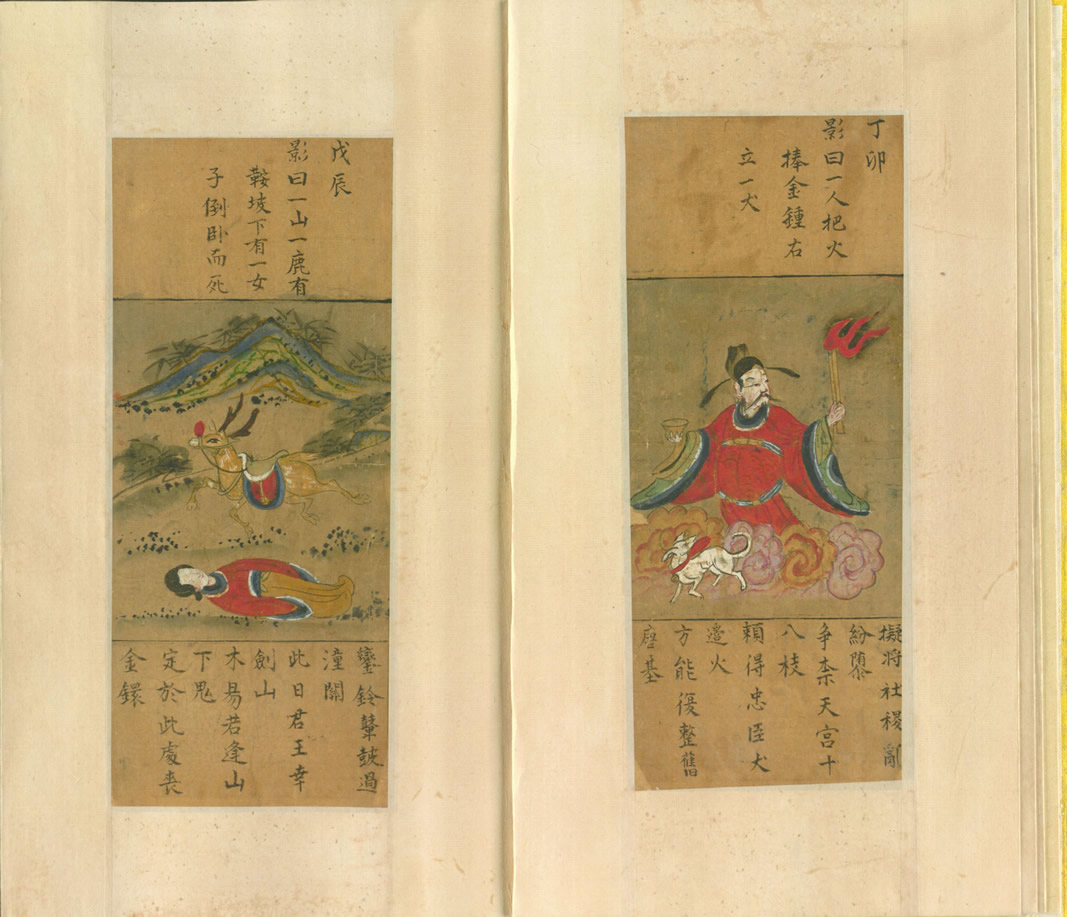 丁卯
影曰一人把火
捧金鍾右
立一犬
擬將社稷亂
紛
爭柰天宮十
八枝
賴得忠臣犬
邊火
方能復整舊
基
戊辰
影曰一山一鹿有
鞍坡下有一女
子倒卧而死
鑾鈴鼙鼓過
潼關
此日君王幸
劍山
木易若逢山
下鬼
定於此處喪
金鐶